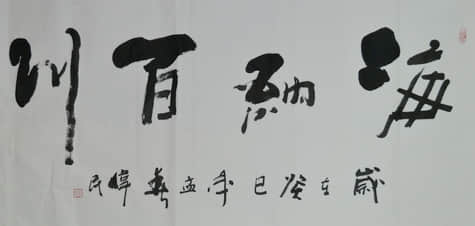 海納百川
歲在癸巳年孟春民